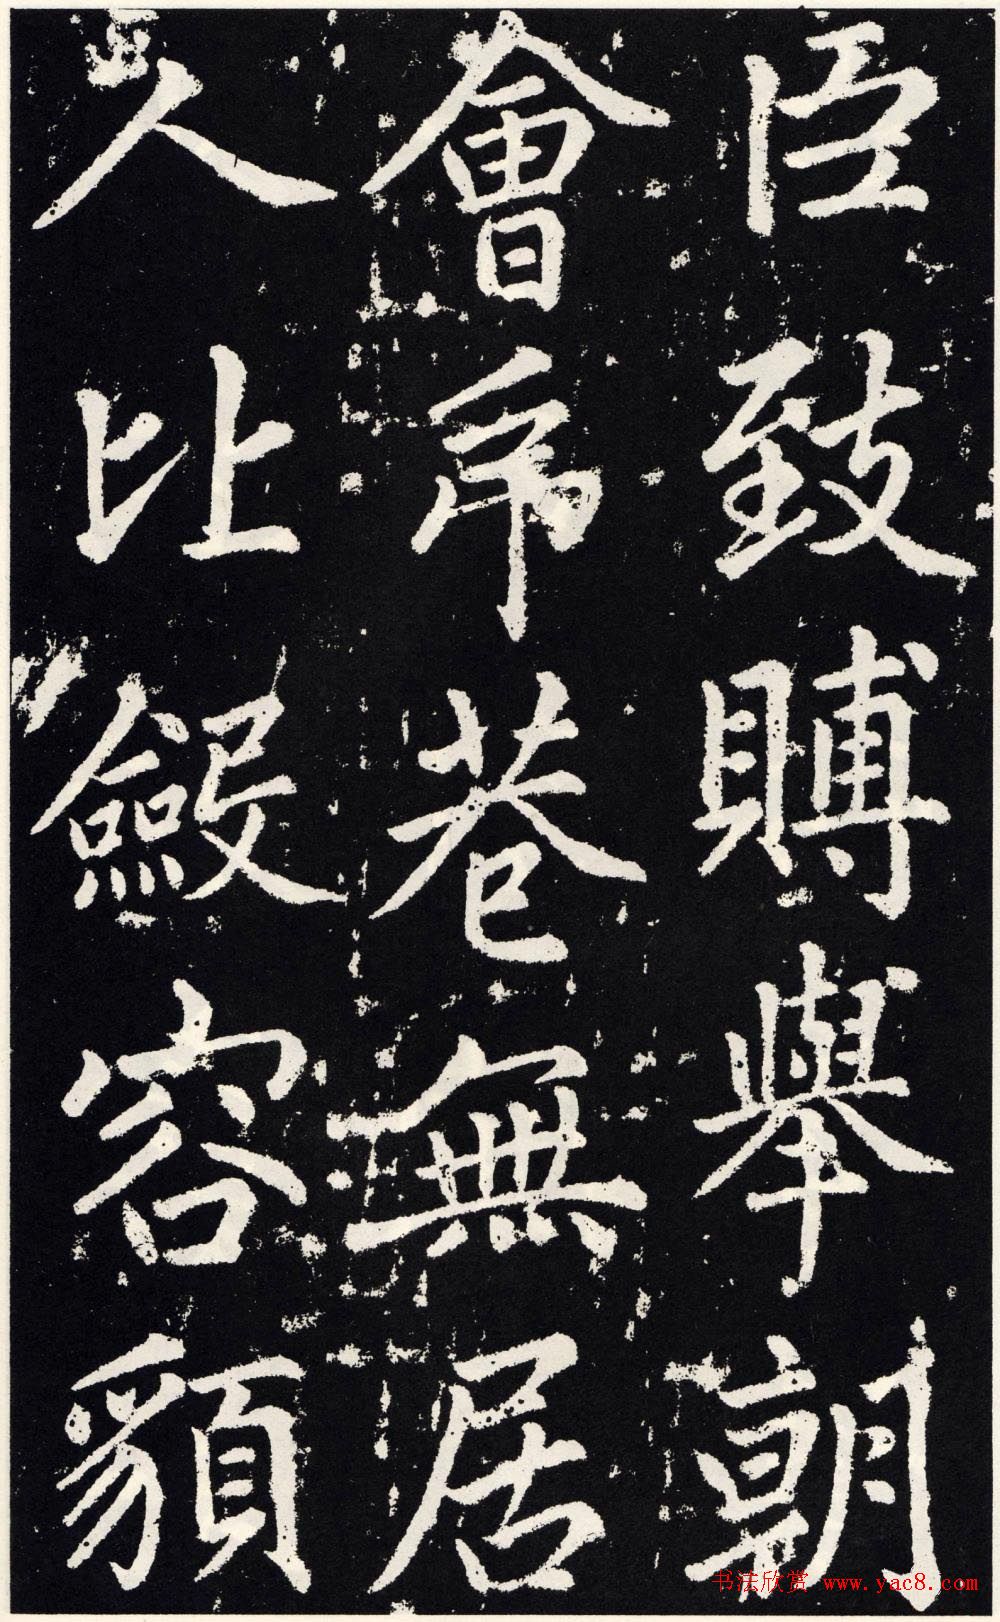 臣致賻舉朝
會弔巷無居
人比斂容䫉
书法欣赏 www.yac8.com